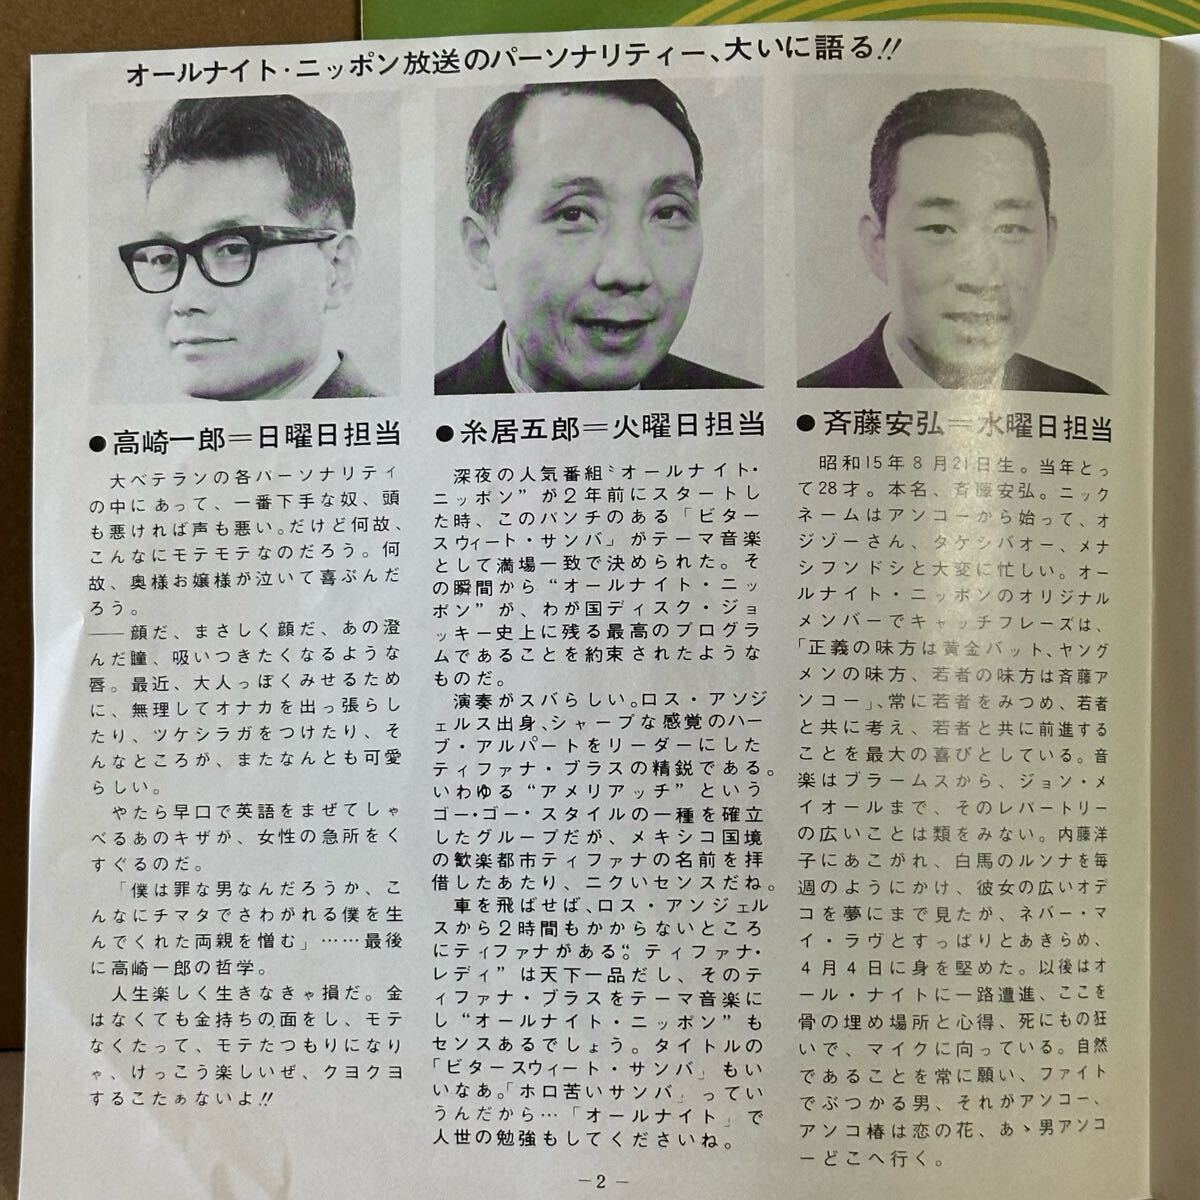 オールナイト・ニッポン放送のパーソナリティー、大いに語る!!
●高崎一郎＝日曜日担当
大ベテランの各パーソナリティ
の中にあって、一番下手な奴、頭
も悪ければ声も悪い。だけど何故、
こんなにモテモテなのだろう。何
故、奥様お嬢様が泣いて喜ぶんだ
ろう。
――顔だ、まさしく顔だ、あの澄
んだ瞳、吸いつきたくなるような
唇。最近、大人っぽくみせるため
に、無理してオナカを出っ張らし
たり、ツケシラガをつけたり、そ
んなところが、またなんとも可愛
らしい。
やたら早口で英語をまぜてしゃ
べるあのキザが、女性の急所をく
すぐるのだ。
「僕は罪な男なんだろうか、こ
んなにチマタでさわがれる僕を生
んでくれた両親を憎む」……最後
に高崎一郎の哲学。
人生楽しく生きなきゃ損だ。金
はなくても金持ちの面をし、モテ
なくたって、モテたつもりになり
ゃ、けっこう楽しいぜ、クヨクヨ
するこたぁないよ!!
●糸居五郎＝火曜日担当
深夜の人気番組“オールナイト・
ニッポン”が2年前にスタートし
た時、このパンチのある「ビター
スウィート・サンバ」がテーマ音楽
として満場一致で決められた。そ
の瞬間から“オールナイト・ニッ
ポン”が、わが国ディスク・ジョ
ッキー史上に残る最高のプログラ
ムであることを約束されたような
ものだ。
演奏がスバらしい。ロス・アンジ
ェルス出身、シャープな感覚のハー
ブ・アルパートをリーダーにした
ティファナ・ブラスの精鋭である。
いわゆる“アメリアッチ”という
ゴー・ゴー・スタイルの一種を確立
したグループだが、メキシコ国境
の歓楽都市ティファナの名前を拝
借したあたり、ニクいセンスだね。
車を飛ばせば、ロス・アンジェル
スから2時間もかからないところ
にティファナがある。“ティファナ・
レディ”は天下一品だし、そのテ
ィファナ・ブラスをテーマ音楽に
し“オールナイト・ニッポン”も
センスあるでしょう。タイトルの
「ビタースウィート・サンバ」もい
いなあ。「ホロ苦いサンバ」ってい
うんだから…「オールナイト」で
人世の勉強もしてくださいね。
●斉藤安弘＝水曜日担当
昭和15年8月21日生。当年とっ
て28才。本名、斉藤安弘。ニック
ネームはアンコーから始って、オ
ジゾーさん、タケシバオー、メナ
シフンドシと大変に忙しい。オー
ルナイト・ニッポンのオリジナル
メンバーでキャッチフレーズは、
「正義の味方は黄金バット、ヤング
メンの味方、若者の味方は斉藤ア
ンコー」、常に若者をみつめ、若者
と共に考え、若者と共に前進する
ことを最大の喜びとしている。音
楽はブラームスから、ジョン・メ
イオールまで、そのレパートリー
の広いことは類をみない。内藤洋
子にあこがれ、白馬のルンナを毎
週のようにかけ、彼女の広いオデ
コを夢にまで見たが、ネバー・マ
イ・ラヴとすっぱりとあきらめ、
4月4日に身を堅めた。以後はオ
ール・ナイトに一路遭進、ここを
骨の埋め場所と心得、死にもの狂
いで、マイクに向っている。自然
であることを常に願い、ファイト
でぶつかる男、それがアンコー、
アンコ椿は恋の花、あゝ男アンコ
ーどこへ行く。
－2－